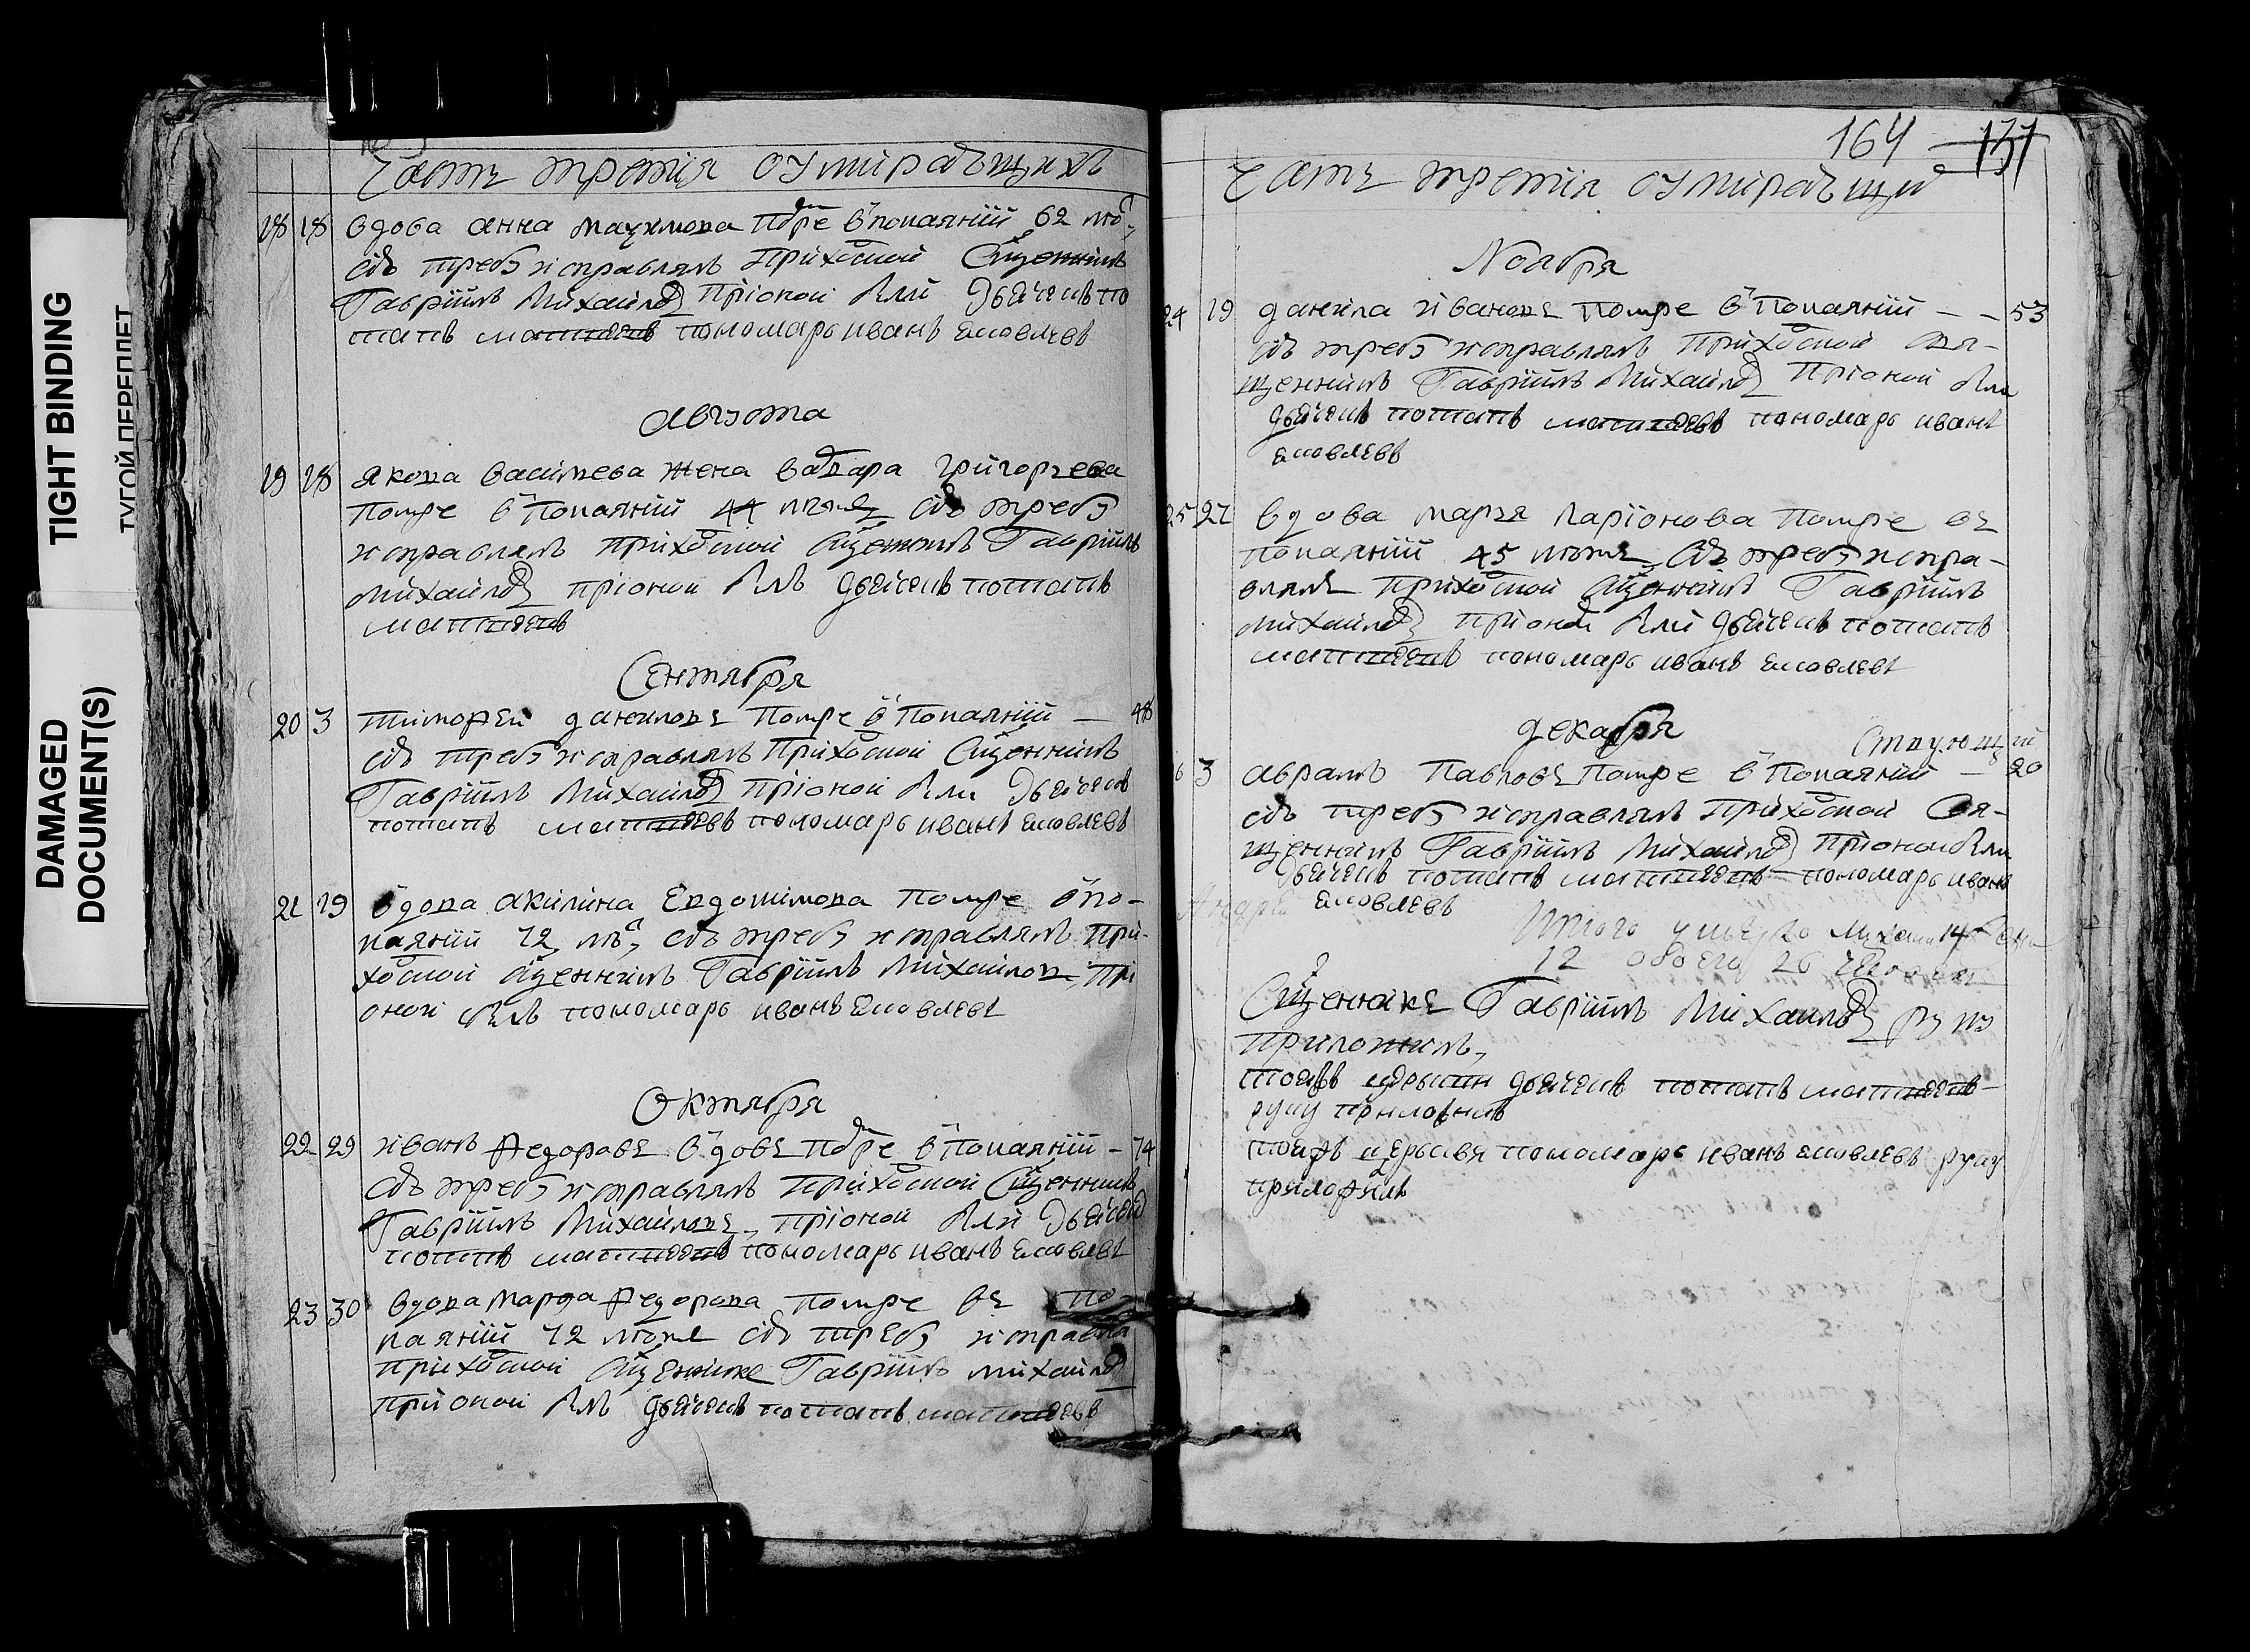 TIGHT BINDING
ТУГОЙ ПЕРЕПЛЕТ
DAMAGED
DOCUMENT(S)
Часть третія оумірающихъ
18 18 вдова анна маѯимова помре въ покаяніи 62 лѣ
сію требу исправлялъ приходской Сщенникъ
Гавріилъ Михайловъ при оной были дьячекъ по
тапъ матвѣевъ пономарь иванъ яковлевъ
августа
19 28 якова василева жена варвара григорьева
помре въ покаяніи 44 лѣтъ сію требу
исправлялъ приходской Сщенникъ Гавріилъ
михайловъ при оной былъ дьячекъ потапъ
матвѣевъ
Сентября
20 3 тимофей даниловъ помре въ покаяніи — 48
сію требу исправлялъ приходской Сщенникъ
Гавріилъ Михайловъ при оной были дьячекъ
потапъ матвѣевъ пономарь иванъ яковлевъ
21 19 вдова акилина Евдокимова помре въ по-
каяніи 72 лѣ, сію требу исправлялъ при-
ходской сщенникъ Гавріилъ Михайловъ при
оной былъ пономарь иванъ яковлевъ
Октября
22 29 иванъ федоровъ вдовъ помре въ покаяніи — 74
сію требу исправлялъ приходской Сщенникъ
Гавріилъ Михайловъ, при оной были дьячекъ
потапъ матвѣевъ пономарь иванъ яковлевъ
23 30 вдова марфа федорова помре въ по-
каяніи 72 сію требу исправлялъ
приходской сщенникъ Гавріилъ михайловъ
при оной былъ дьячекъ потапъ матвѣевъ
164 131
Часть третія оумірающи
Ноября
24 19 данила ивановъ помре въ покаяніи — — 53
сію требу исправлялъ приходской свя-
щенникъ Гавріилъ Михайловъ при оной были
дьячекъ потапъ матвѣевъ пономарь иванъ
яковлевъ
25 21 вдова марья ларіонова помре въ
покаяніи 45 сію требу испра-
влялъ приходской сщенникъ Гавріилъ
михайловъ при оной были дьячекъ потапъ
матвѣевъ пономарь иванъ яковлевъ
декабря
6 3 аврамъ Павловъ помре въ покаяніи — 20
сію требу исправлялъ приходской Свя-
щенникъ Гавріилъ Михайловъ при оной были
дьячекъ потапъ матвѣевъ пономарь иванъ
яковлевъ
Итого 14
12 обоего 26
Сщенникъ Гавріилъ Михайловъ руку
приложилъ,
тоеяжъ церкви дьячекъ потапъ матвѣевъ
руку приложилъ
тоежъ церькви пономарь иванъ яковлевъ руку
приложилъ